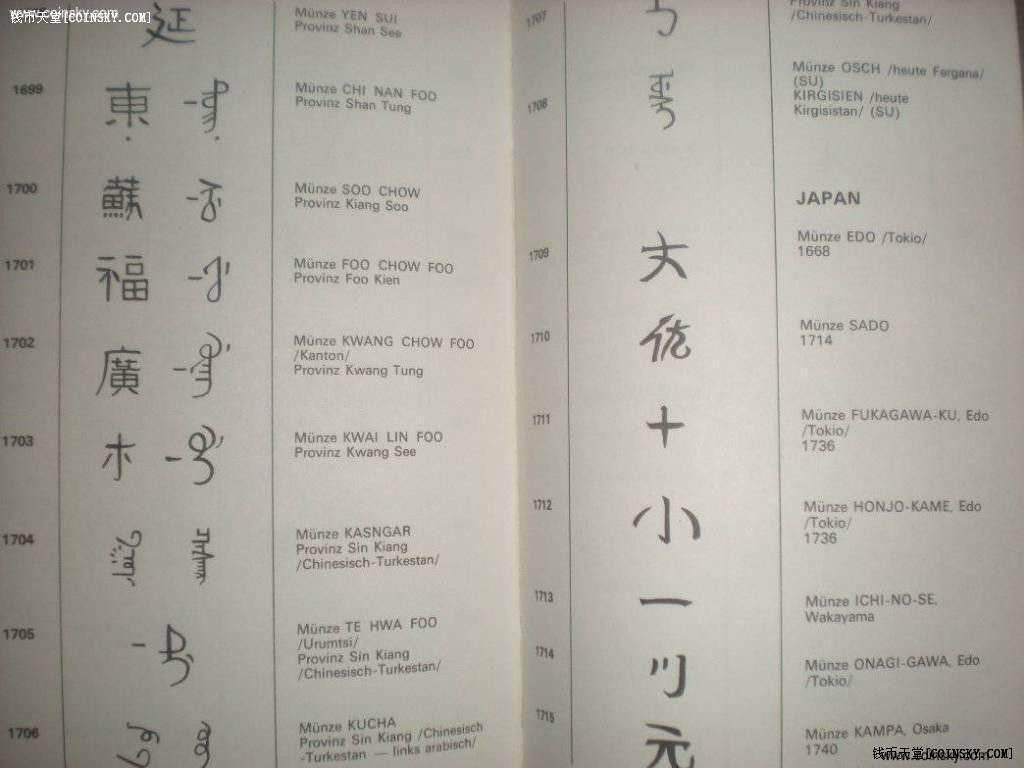 www.coinsky.com
钱币天堂[COINSKY.COM]
延
Münze YEN SUI
Provinz Shan See
1699
東
Münze CHI NAN FOO
Provinz Shan Tung
1700
蘇
Münze SOO CHOW
Provinz Kiang Soo
1701
福
Münze FOO CHOW FOO
Provinz Foo Kien
1702
廣
Münze KWANG CHOW FOO
/Kanton/
Provinz Kwang Tung
1703
Münze KWAI LIN FOO
Provinz Kwang See
1704
Münze KASNGAR
Provinz Sin Kiang
/Chinesisch-Turkestan/
1705
Münze TE HWA FOO
/Urumtsi/
Provinz Sin Kiang
/Chinesisch-Turkestan/
1706
Münze KUCHA
Provinz Sin Kiang /Chinesisch
-Turkestan — links arabisch/
1707
Provinz Sin Kiang
/Chinesisch-Turkestan/
1708
Münze OSCH /heute Fergana/
(SU)
KIRGISIEN /heute
Kirgisistan/ (SU)
JAPAN
1709
Münze EDO /Tokio/
1668
1710
Münze SADO
1714
1711
十
Münze FUKAGAWA-KU, Edo
/Tokio/
1736
1712
小
Münze HONJO-KAME, Edo
/Tokio/
1736
1713
一
Münze ICHI-NO-SE,
Wakayama
1714
川
Münze ONAGI-GAWA, Edo
/Tokio/
1715
元
Münze KAMPA, Osaka
1740
钱币天堂[COINSKY.COM]
www.coinsky.com